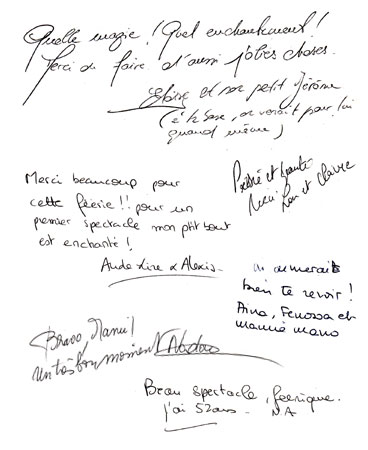 Quelle magie ! Quel enchantement !
Merci de faire d'aussi jolies choses.
et son petit Jérôme
pour lui
quand même)
Poésie et
Merci et Claire
Merci beaucoup pour
cette féérie !! pour un
premier spectacle mon ptit bout
est enchanté !
Aude Lire & Alexis.
on aimerait
bien te revoir !
Aina, Fenossa et
mamie mano
Bravo Manuel
un très bon moment
Beau spectacle, féerique.
j'ai 52 ans. N.A